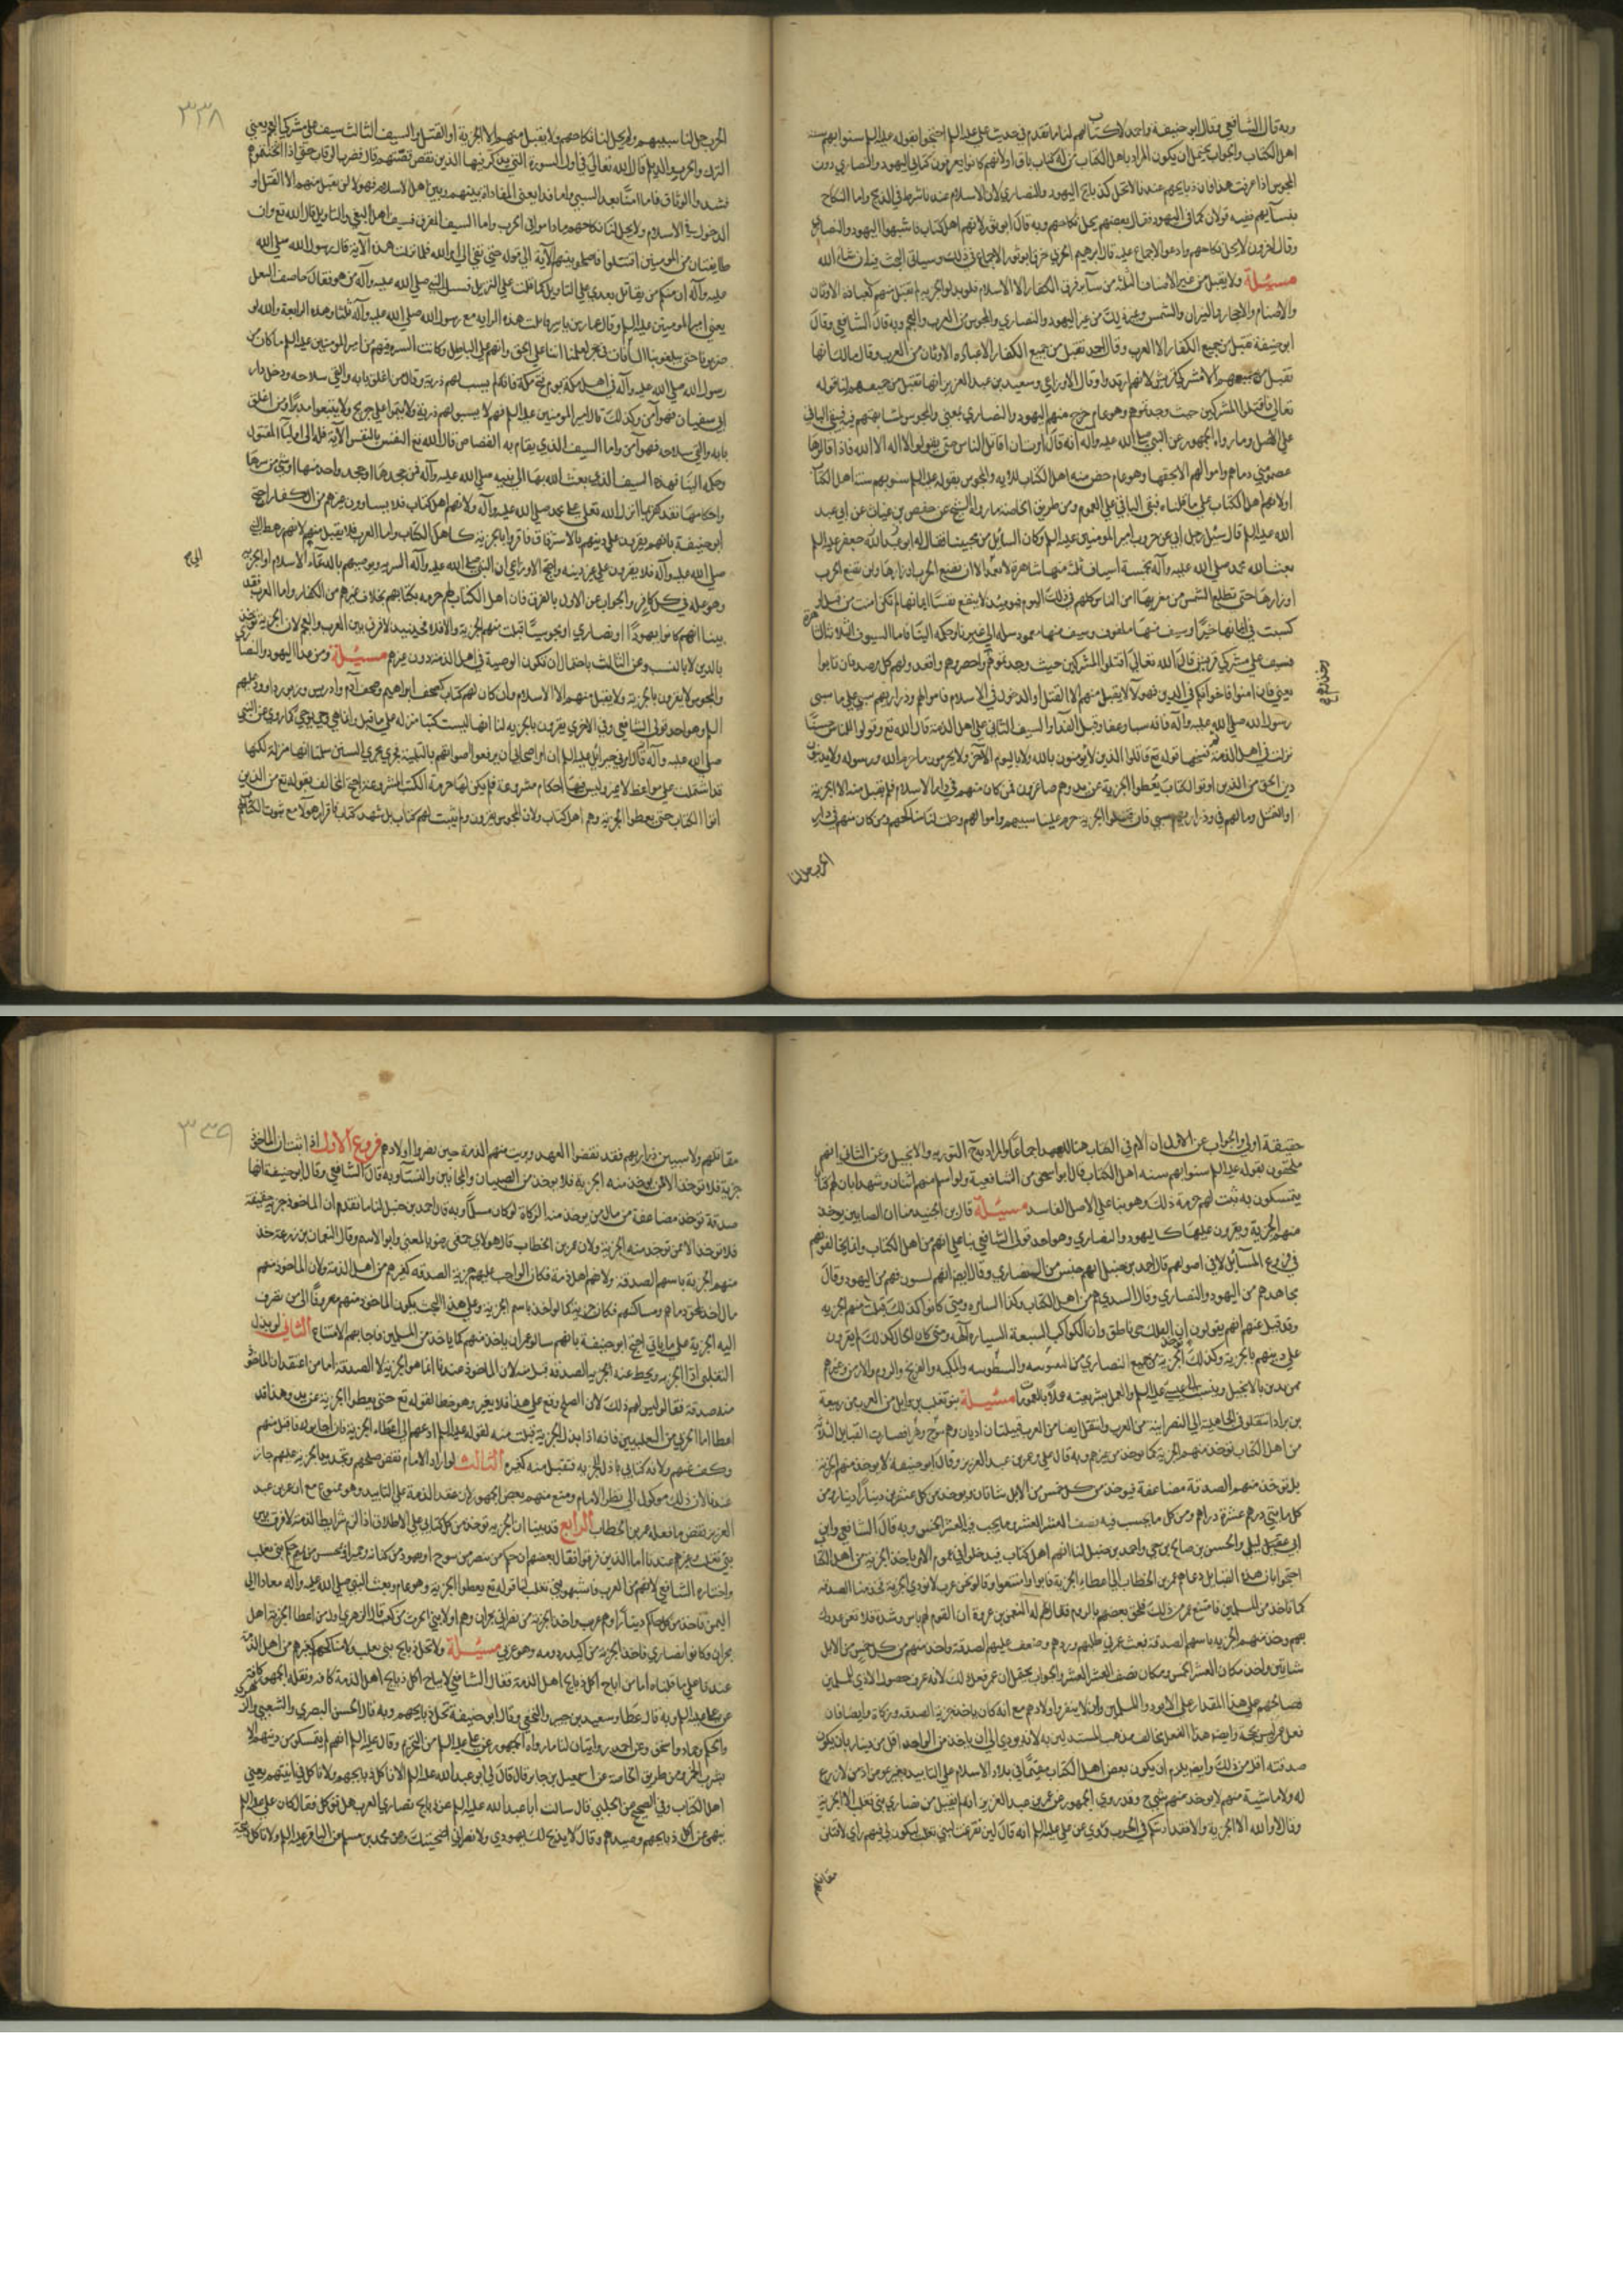 وبه قال الشافعي وقال ابو حنيفة واحمد لا كتاب لهم لنا ما تقدم في حديث علي عليه السلم احتجوا بقوله عليه السلم سنوا بهم سنة
اهل الكتاب والجواب يحتمل ان يكون المراد باهل الكتاب من له كتاب باق او لانهم كانوا يعرفون كتابي اليهود والنصاري دون
المجوس اذا عرفت هذا فان ذبايحهم عندنا لا تحل كذبايح اليهود والنصاري لان الاسلام عندنا شرط في الذبح واما النكاح
بنسآيهم ففيه قولان كما في اليهود فقال بعضهم يحل نكاحهم وبه قال ابو ثور لانهم اهل كتاب فاشبهوا اليهود والنصاري
وقال اخرون لا يحل نكاحهم وادعوا الاجماع عليه قال ابرهيم الحربي خرق ابو ثور الاجماع في ذلك وسياتي البحث فيه ان شاء الله
مسئلة ولا يقبل من غير الاصناف الثلثة من سآير فرق الكفار الا الاسلام فلو بذلوا الجزية لم تقبل منهم كعباد الاوثان
والاصنام والاحجار والنيران والشمس وغير ذلك من غير اليهود والنصاري والمجوس من العرب والعجم وبه قال الشافعي وقال
ابو حنيفة تقبل من جميع الكفار الا العرب وقال احمد تقبل من جميع الكفار الا عبدة الاوثان من العرب وقال مالك انها
تقبل من جميعهم الا مشركي قريش لانهم ارتدوا وقال الاوزاعي وسعيد بن عبد العزيز انها تقبل من جميعهم لنا قوله
تعالي فاقتلوا المشركين حيث وجدتموهم وهو عام خرج منهم اليهود والنصاري بمعني والمجوس لمشابهتهم فيبقي الباقي
علي الاصل وما رواه الجمهور عن النبي صلي الله عليه وآله انه قال امرت ان اقاتل الناس حتي يقولوا لا اله الا الله فاذا قالوها
عصموا مني دماهم واموالهم الا بحقها وهو عام خص منه اهل الكتاب للاية والمجوس بقوله عليه السلم سنوا بهم سنة اهل الكتاب
او لانهم اهل الكتاب علي ما قلناه فبقي الباقي علي العموم ومن طريق الخاصة ما رواه الشيخ عن حفص بن غياث عن ابي عبد
الله عليه السلم قال سئل رجل ابي عن حروب امير المومنين عليه السلم وكان السآيل من محبينا فقال له ابو عبد الله جعفر عليه السلم
بعث الله محمد صلي الله عليه وآله بخمسة اسياف ثلثة منها شاهرة لا تغمد الا ان تضع الحرب اوزارها ولن تضع الحرب
اوزارها حتي تطلع الشمس من مغربها امن الناس كلهم في ذلك اليوم فيومئذ لا ينفع نفسا ايمانها لم تكن امنت من قبل او
كسبت في ايمانها خيرا وسيف منها ملفوف وسيف منها مغمود سله الي غيرنا وحكمه الينا فاما السيوف الثلاثة الشاهرة
فسيف علي مشركي قريش قال الله تعالي اقتلوا المشركين حيث وجدتموهم واحصروهم واقعدوا لهم كل مرصد فان تابوا
يعني فان امنوا فاخوانكم في الدين فهولآ لا يقبل منهم الا القتل او الدخول في الاسلام فاموالهم وذراريهم سبي علي ما سبي
رسول الله صلي الله عليه وآله فانه سبا وعفا وقبل الفدا والسيف الثاني علي اهل الذمة قال الله تع وقولوا للناس حسنا
نزلت في اهل الذمة فنسخها قوله تع قاتلوا الذين لا يؤمنون بالله ولا باليوم الآخر ولا يحرمون ما حرم الله ورسوله ولا يدينون
دين الحق من الذين اوتوا الكتاب حتي يعطوا الجزية عن يد وهم صاغرون فمن كان منهم في دار الاسلام فلم يقبل منه الا الجزية
او القتل ومالهم في وذراريهم سبي فان قبلوا الجزية حرم علينا سبيهم واموالهم وحلت لنا مناكحهم ومن كان منهم في دار
الحرب حل لنا
٣٣٨
الحرب حل لنا سبيهم ولم يحل لنا نكاحهم ولا يقبل منهم الا الجزية او القتل والسيف الثالث سيف علي مشركي العجم يعني
الترك والخزر والديلم قال الله تعالي في اول السورة التي يذكر فيها الذين نقص قصتهم وقال فضرب الرقاب حتي اذا اثخنتموهم
فشدوا الوثاق فاما منا بعد السبي واما فدا يعني المفاداة بينهم وبين اهل الاسلام فهولا لن يقبل منهم الا القتل او
الدخول في الاسلام ولا يحل لنا نكاحهم ما داموا في الحرب واما السيف الملفوف فسيف اهل البغي والتاويل قال الله تع وان
طايفتان من المومنين اقتتلوا فاصلحوا بينهما الآية الي قوله حتي تفي الي امر الله فلما نزلت هذه الآية قال رسول الله صلي الله
عليه وآله ان منكم من يقاتل بعدي علي التاويل كما قاتلت علي التنزيل فسئل النبي صلي الله عليه وآله من هو فقال خاصف النعل
يعني امير المومنين عليه السلم وقال عمار بن ياسر قاتلت هذه الراية مع رسول الله صلي الله عليه وآله ثلثا وهذه الرابعة والله لو
ضربونا حتي يبلغوا بنا السعفات من هجر لعلمنا اننا علي الحق وانهم علي الباطل وكانت السيرة فيهم من امير المومنين عليه السلم ما كان من
رسول الله صلي الله عليه وآله في اهل مكة يوم فتح مكة فانه لم يسب لهم ذرية وقال من اغلق بابه والقي سلاحه ودخل دار
ابي سفيان فهو آمن وكذلك قال امير المومنين عليه السلم فيهم لا تسبوا لهم ذرية ولا تتموا علي جريح ولا تتبعوا مدبرا ومن اغلق
بابه والقي سلاحه فهو آمن واما السيف المغمود فالسيف الذي يقام به القصاص قال الله تع النفس بالنفس الآية فسله الي اوليآ المقتول
وحكمه الينا فهذه السيوف الذي بعث الله بها الي نبيه صلي الله عليه وآله فمن جحدها او جحد واحدا منها او شيئ من سيرها
واحكامها فقد كفر بما انزل الله تعلي علي محمد صلي الله عليه وآله ولانهم اهل كتاب فلا يساوون غيرهم من الكفار احتج
ابو حنيفة بانهم يقرون علي دينهم بالاسترقاق فاقروا بالجزية كاهل الكتاب واما العرب فلا يقبل منهم لانهم رهط النبي
صلي الله عليه وآله فلا يقرون علي غير دينه واحتج الاوزاعي ان النبي صلي الله عليه وآله السريه ويوصيهم بالدعاء الاسلام او الجزية
وهو عام في كل كافر والجواب عن الاول بالفرق فان اهل الكتاب لهم حرمة بكتابهم بخلاف غيرهم من الكفار واما العرب فقد
بينا انهم كانوا يهودا او نصاري او مجوسيا قبلت منهم الجزية والا فلا فحينئذ لا فرق بين العرب والعجم لان الجزية توخذ
بالدين لا بالنسب وعن الثالث باحتمال ان تكون الوصية في اهل الذمة دون غيرهم مسئلة ومن عدا اليهود والنصاري
والمجوس لا يقرون بالجزية ولا يقبل منهم الا الاسلام وان كان لهم كتاب كصحف ابراهيم وصحف آدم وادريس وزبور داوود عليهم
السلم وهو احد قولي الشافعي وفي الاخري يقرون بالجزية لنا انها ليست كتبا منزلة علي ما قيل وانما هي وحي يوحي كما روي عن النبي
صلي الله عليه وآله قال امرني جبرائيل عليه السلم ان امر اصحابي ان يرفعوا اصواتهم بالتلبية فجري مجري السنن سلمنا انها منزلة لكنها
قد اشتملت علي مواعظ لا غير وليس فيها احكام مشروعة فلم يكن لها حرمة الكتب المشروعة احتج المخالف بقوله تع من الذين
اوتوا الكتاب حتي يعطوا الجزية وهم اهل كتاب ولان المجوس يقرون ولم يثبت لهم كتاب بل شبهة كتاب فاقرار هولا مع ثبوت الكتاب لهم
حقيقة اولي والجواب عن الاول ان اللام في الكتاب هنا للعهد اجماعا والمراد به التورية والانجيل وعن الثاني انهم
ملحقون بقوله عليه السلم سنوا بهم سنة اهل الكتاب قال ابو اسحق من الشافعية ولو اسلم منهم اثنان وشهدا بان لهم كتابا
يتمسكون به ثبت لهم حرمة ذلك وهو بناء علي الاصل الفاسد مسئلة قال ابن الجنيد منا ان الصابين يوخذ
منهم الجزية ويقرون عليها كاليهود والنصاري وهو احد قولي الشافعي بناء علي انهم من اهل الكتاب وانما يخالفونهم
في فروع المسآيل لا في اصولهم قال احمد بن حنبل انهم جنس من النصاري وقال ايضا انهم يسبتون فهم من اليهود وقال
مجاهد هم من اليهود والنصاري وقال السدي هم من اهل الكتاب وكذا السامرة ومتي كانوا كذلك قبلت منهم الجزيه
وقد قيل عنهم انهم يقولون ان الفلك حي ناطق وان الكواكب السبعة السيارة آلهة ومتي كان الحال كذلك لم يقرون
علي دينهم بالجزية وكذلك توخذ الجزية من جميع النصاري من اليعقوبيه والنسطوريه والملكيه والفرنج والروم والارمن وغيرهم
ممن يدين بالانجيل وينتسب الي عيسي عليه السلم والعمل بشريعته عملا بالعموم مسئلة بنو تغلب بن وايل من العرب من ربيعة
بن نزار انتقلوا في الجاهلية الي النصرانية من العرب وانتقل ايضا من العرب قبيلتان اديان وهم تنوخ وبهرا فصارت القبايل الثلاثة
من اهل الكتاب توخذ منهم الجزية كما توخذ من غيرهم وبه قال علي وعمر بن عبد العزيز وقال ابو حنيفة لا يوخذ منهم الجزية
بل توخذ منهم الصدقة مضاعفة فيوخذ من كل خمس من الابل شاتان ويوخذ من كل عشرين دينارا دينار ومن
كل مايتي درهم عشرة دراهم ومن كل ما يجب فيه نصف العشر العشر وما يجب فيه العشر الخمس وبه قال الشافعي وابن
ابي ليلي والحسن بن صالح بن حي واحمد بن حنبل لنا انهم اهل كتاب فيدخلوا في عموم الامر باخذ الجزية من اهل الكتاب
احتجوا بان هذه القبايل دعاهم عمر بن الخطاب الي اعطاء الجزية فابوا وامتنعوا وقالوا نحن عرب لا نودي الجزية فخذ منا الصدقة
كما تاخذ من المسلمين فامتنع عمر من ذلك فلحق بعضهم بالروم فقال له النعمن بن عروة ان القوم لهم باس وشدة فلا تعن عدوك
بهم وخذ منهم الجزيه باسم الصدقة فبعث عمر في طلبهم وردهم وضعف عليهم الصدقة واخذ منهم من كل خمس من الابل
شاتين واخذ مكان العشر الخمس ومكان نصف العشر العشر والجواب يحتمل ان عمر فعل ذلك لانه عرف حصول الاذي للمسلمين
فصالحهم علي هذا المقدار علي الا يودوا المسلمين وان لا ينصروا اولادهم مع انه كان ياخذ جزية لا صدقه وزكاة وايضا فان
فعل عمر ليس بحجة وايضا هذا الفعل مخالف مذهب المستدلين به لانه يودي الي ان ياخذ من الواحد اقل من دينار بان يكون
صدقته اقل من ذلك وايضا يلزم ان يكون بعض اهل الكتاب مقيما في بلاد الاسلام علي التابيد بغير عوض اذ من لا زرع
له ولا ماشية منهم لا يوخذ منهم شيء وقد روي الجمهور عن عمر بن عبد العزيز انه لم يقبل من نصاري بني تغلب الا الجزية
وقال لا والله الا الجزية والا فقد اذنتكم في الحرب وروي عن علي عليه السلم انه قال لين تفرغت لبني تغلب ليكون لي فيهم راي لاقتلن
مقاتلهم
٣٣٩
مقاتلهم ولاسبين ذراريهم فقد نقضوا العهد وبريت منهم الذمة حين نصروا اولادهم فروع الاول اذا ثبت ان الماخوذ
جزية فلا توخذ الا ممن يوخذ منه الجزية فلا يوخذ من الصبيان والمجانين والنسآ وبه قال الشافعي وقال ابو حنيفة انها
صدقة توخذ مضاعفة من مال من يوخذ منه الزكاة لو كان مسلما وبه قال احمد بن حنبل لنا ما تقدم ان الماخوذ جزية حقيقة
فلا توخذ الا ممن توخذ منه الجزية ولان عمر بن الخطاب قال هولاي حمقي رضوا بالمعني وابوا الاسم وقال النعمان بن زرعة خذ
منهم الجزية باسم الصدقة ولانهم اهل ذمة فكان الواجب عليهم جزية لا صدقه كغيرهم من اهل الذمة ولان الماخوذ منهم
مال اخذ لحقن دماهم ومساكنهم فكان جزية كما لو اخذ باسم الجزية وعلي هذا البحث يكون الماخوذ منهم مصروفا الي من تصرف
اليه الجزية علي ما ياتي احتج ابو حنيفة بانهم سالوا عمر ان ياخذ منهم كما ياخذ من المسلمين فاجابهم الامتناع الثاني لو بذل
التغلبي اداء الجزيه ويحط عنه الصدقه قبل منه لان الماخوذ عندنا انما هو الجزية لا الصدقة اما من اعتقد ان الماخوذ
منه صدقة فقالوا ليس لهم ذلك لان الصلح وقع علي هذا فلا يغير وهو خطا لقوله تع حتي يعطوا الجزية عن يد وهذا قد
اعطا اما الحربي من التغلبيين فانه اذا بذل الجزية قبلت منه لقوله عليه السلم ادعهم الي اعطاء الجزية فان اجابوك فاقبل منهم
وكف عنهم ولانه كتابي باذل للجزيه فتقبل منه كغيره الثالث لو اراد الامام نقض صلحهم وتجديد الجزية عليهم جاز
عندنا لان ذلك موكول الي نظر الامام ومنع منهم بعض الجمهور لان عقد الذمة علي التابيد وهو ممنوع مع ان عمر بن عبد
العزيز نقض ما فعله عمر بن الخطاب الرابع قد بينا ان الجزيه توخذ من كل كتابي علي الاطلاق اذا التزم شرايط الذمة لا فرق بين
بني تغلب وغيرهم عندنا
واختاره الشافعي لانهم من العرب فاشبهوا بني تغلب لنا قوله تع يعطوا الجزية وهو عام وبعث النبي صلي الله عليه وآله معاذا الي
اليمن فاخذ من كل حالم دينارا وهم عرب واخذ الجزية من نصراني نجران وهم اولاد بني الحرث بن كعب قال الزهري اول من اعطا الجزية اهل
نجران وكانوا نصاري واخذ الجزية من اكيدر دومه وهو عربي مسئلة ولا تحل ذبايح بني تغلب ولا مناكحهم كغيرهم من اهل الذمة
عندنا علي ما قلناه اما من اباح اكل ذبايح اهل الذمة فقال الشافعي لا يباح اكل ذبايح اهل الذمة كافه ونقله الجمهور كافة
عن علي عليه السلم وبه قال عطا وسعيد بن جبير والنخعي وقال ابو حنيفة تحل ذبايحهم وبه قال الحسن البصري والشعبي والزهري
والحكم وحماد واسحق وعن احمد روايتان لنا ما رواه الجمهور عن علي عليه السلم من التحريم وقال عليه السلم انهم لم يتمسكوا من دينهم الا
بشرب الخمر ومن طريق الخاصة عن اسمعيل بن جابر قال قال لي ابو عبد الله عليه السلم لا تاكل ذبايحهم ولا تاكل في آنيتهم يعني
اهل الكتاب وفي الصحيح عن الحلبي قال سالت ابا عبد الله عليه السلم عن ذبايح نصاري العرب هل توكل فقال كان علي عليه السلم
ينهي عن اكل ذبايحهم وصيدهم وقال لا يذبح لك يهودي ولا نصراني اضحيتك وعن محمد بن مسلم عن الباقر عليه السلم ولا تاكل ذبيحة